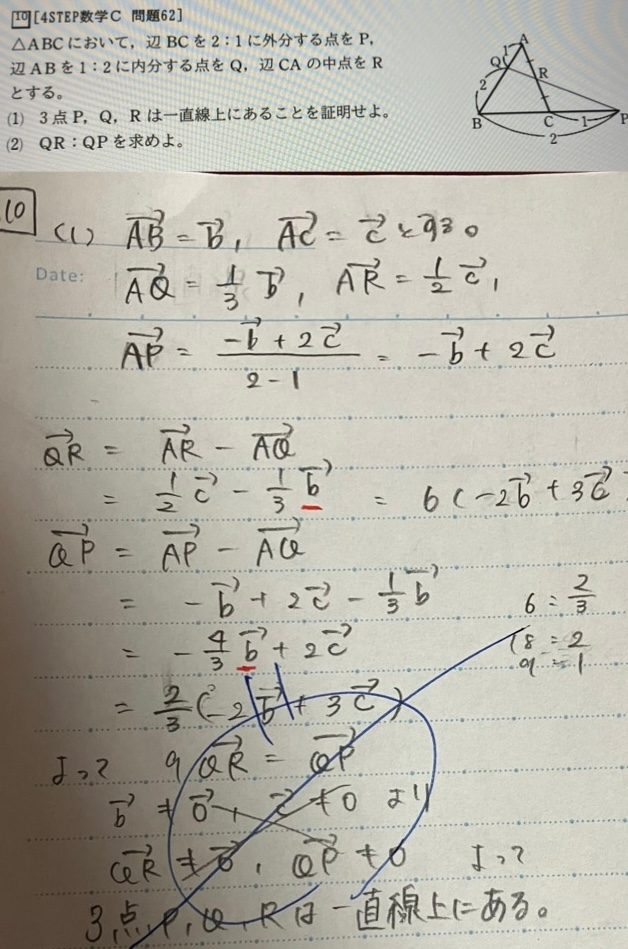 10 [4STEP数学C 問題62]
△ABCにおいて，辺BCを2：1に外分する点をP，
辺ABを1：2に内分する点をQ，辺CAの中点をR
とする。
(1) 3点P，Q，Rは一直線上にあることを証明せよ。
(2) QR：QPを求めよ。
A
1
Q
R
2
B
C
1
P
2
10
(1) AB→ = b→, AC→ = c→ とする。
Date:
AQ→ = 1/3 b→, AR→ = 1/2 c→,
AP→ = (-b→ + 2c→)/(2-1) = -b→ + 2c→
QR→ = AR→ - AQ→
= 1/2 c→ - 1/3 b→ = 6(-2b→ + 3c→
QP→ = AP→ - AQ→
= -b→ + 2c→ - 1/3 b→
= -4/3 b→ + 2c→
6 : 2/3
18 = 2
9 = 1
= 2/3(-2b→ + 3c→)
よって 9QR→ = QP→
b→ ≠ 0→, c→ ≠ 0 より
QR→ ≠ 0→, QP→ ≠ 0 よって
3点P, Q, Rは一直線上にある。